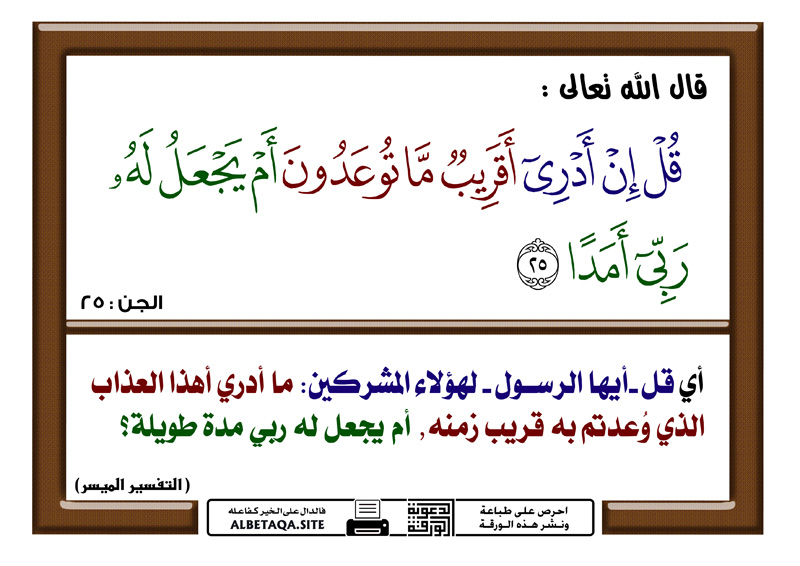 قال الله تعالى :
قُلْ إِنْ أَدْرِىٓ أَقَرِيبٌ مَّا تُوعَدُونَ أَمْ يَجْعَلُ لَهُۥ
رَبِّىٓ أَمَدًا ٢٥
الجن : ٢٥
أي قل -أيها الرسول - لهؤلاء المشركين: ما أدري أهذا العذاب
الذي وُعدتم به قريب زمنه, أم يجعل له ربي مدة طويلة؟
(التفسير الميسر)
احرص على طباعة
ونشر هذه الورقة
الورقة
الدعوية
فالدال على الخير كفاعله
ALBETAQA.SITE